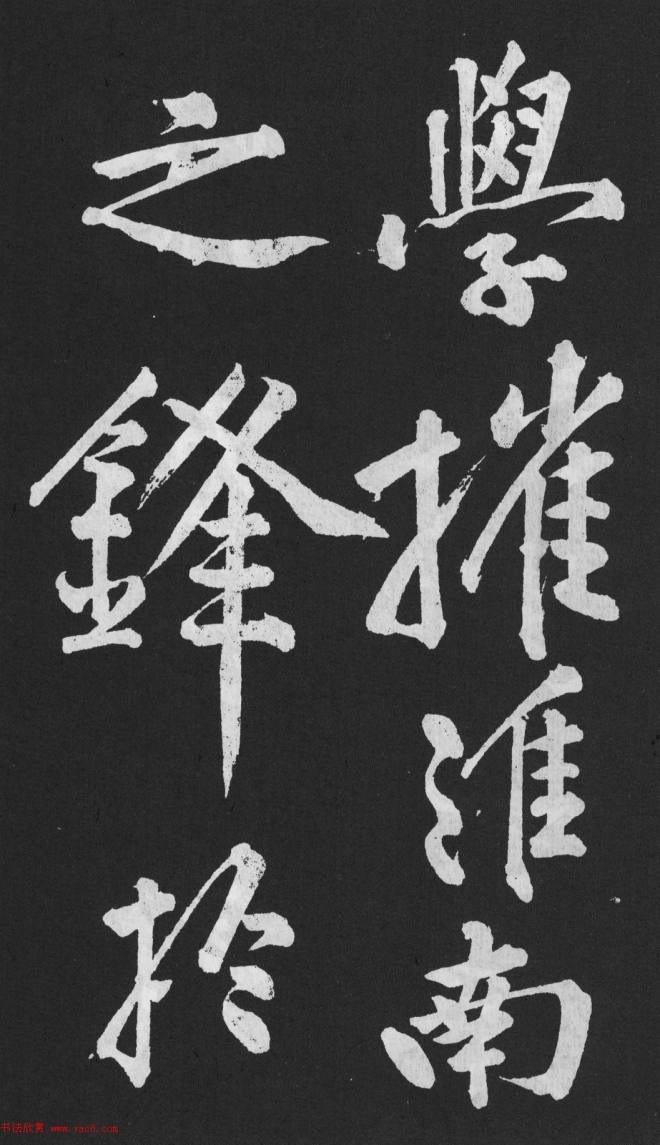 學摧淮南
之鋒於
书法欣赏 www.yac8.com